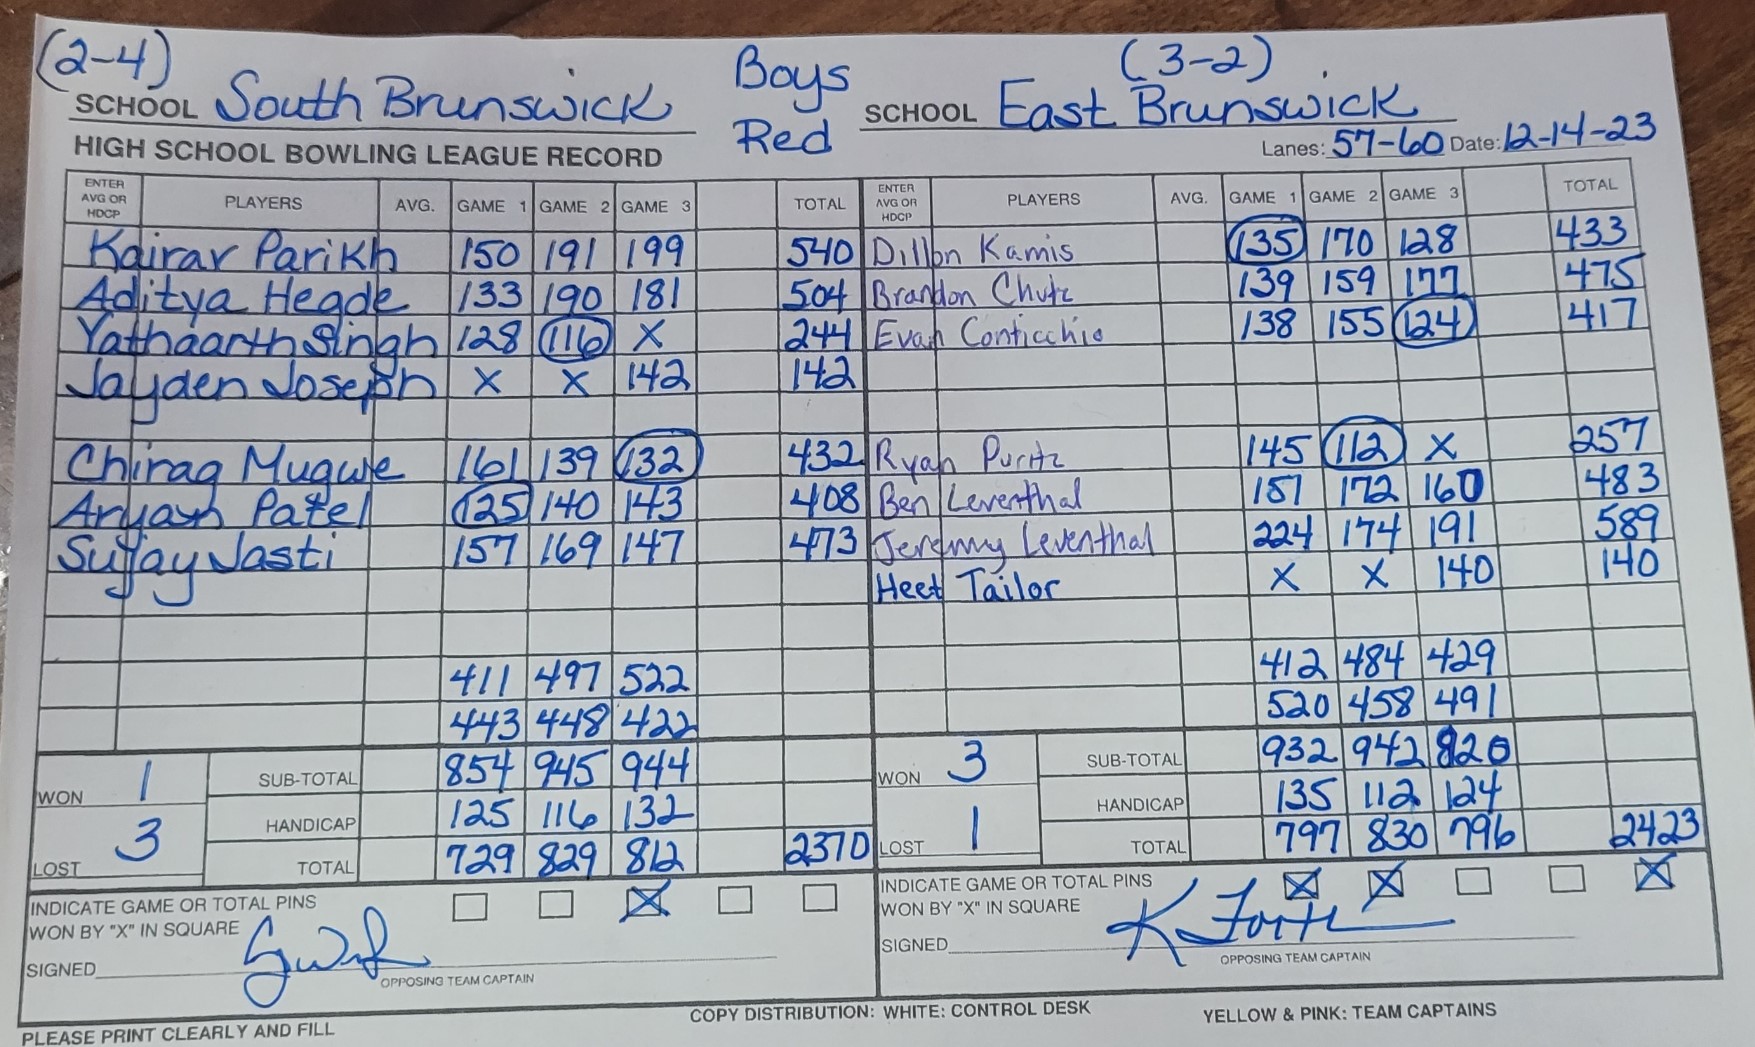 (2-4) Boys (3-2)
SCHOOL South Brunswick Red SCHOOL East Brunswick
HIGH SCHOOL BOWLING LEAGUE RECORD Lanes: 57-60 Date: 12-14-23
ENTER AVG OR HDCP PLAYERS AVG. GAME 1 GAME 2 GAME 3 TOTAL ENTER AVG OR HDCP PLAYERS AVG. GAME 1 GAME 2 GAME 3 TOTAL
Kairav Parikh 150 191 199 540 Dillon Kamis 135 170 128 433
Aditya Hegde 133 190 181 504 Brandon Chutz 139 159 177 475
Yathaarth Singh 128 116 X 244 Evan Conticchio 138 155 124 417
Jayden Joseph X X 142 142
Chirag Mugwe 161 139 132 432 Ryan Puritz 145 112 X 257
Aryash Patel 125 140 143 408 Ben Leventhal 151 172 160 483
Sujay Jasti 157 169 147 473 Jeremy Leventhal 224 174 191 589
Heet Tailor X X 140 140
411 497 522 412 484 429
443 448 422 520 458 491
WON 1 SUB-TOTAL 854 945 944 WON 3 SUB-TOTAL 932 942 920
HANDICAP 125 116 132 HANDICAP 135 112 124
LOST 3 TOTAL 729 829 812 2370 LOST 1 TOTAL 797 830 796 2423
INDICATE GAME OR TOTAL PINS X INDICATE GAME OR TOTAL PINS X X X
WON BY "X" IN SQUARE WON BY "X" IN SQUARE
SIGNED SIGNED K
OPPOSING TEAM CAPTAIN OPPOSING TEAM CAPTAIN
COPY DISTRIBUTION: WHITE: CONTROL DESK YELLOW & PINK: TEAM CAPTAINS
PLEASE PRINT CLEARLY AND FILL